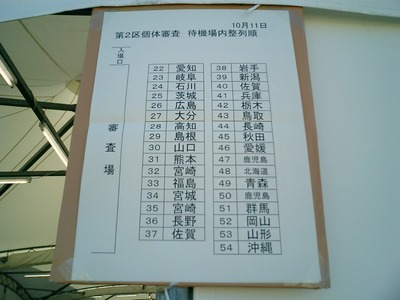 10月11日
第2区個体審査 待機場内整列順
入場口
審査場
22 愛知
23 岐阜
24 石川
25 茨城
26 広島
27 大分
28 高知
29 島根
30 山口
31 熊本
32 宮崎
33 福島
34 宮城
35 宮崎
36 長野
37 佐賀
38 岩手
39 新潟
40 佐賀
41 兵庫
42 栃木
43 鳥取
44 長崎
45 秋田
46 愛媛
47 鹿児島
48 北海道
49 青森
50 鹿児島
51 群馬
52 岡山
53 山形
54 沖縄